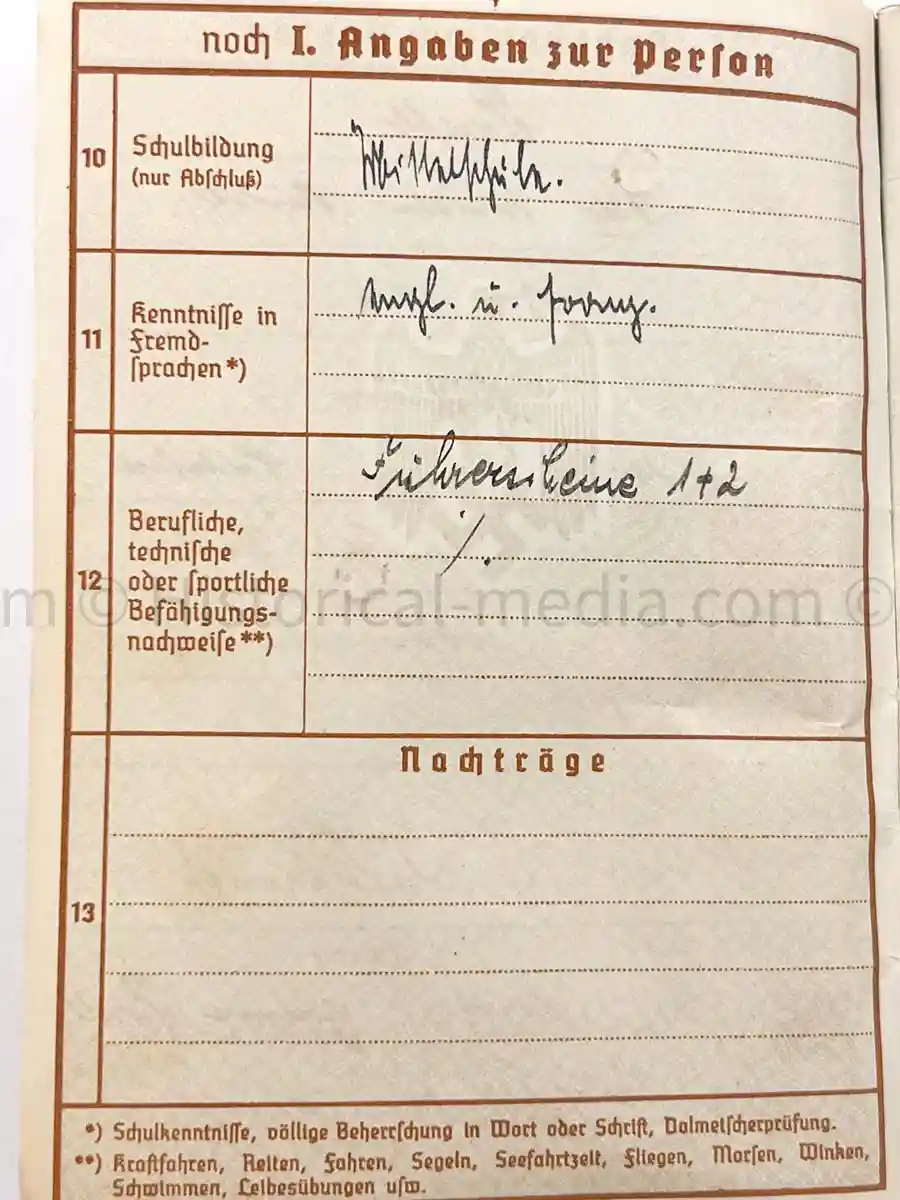 noch I. Angaben zur Person
10
Schulbildung
(nur Abschluß)
Mittelschule.
11
Kenntnisse in
Fremd-
sprachen*)
engl. u. franz.
12
Berufliche,
technische
oder sportliche
Befähigungs-
nachweise**)
Führerscheine 1+2
./.
m © historical-media.com ©
13
Nachträge
*) Schulkenntnisse, völlige Beherrschung in Wort oder Schrift, Dolmetscherprüfung.
**) Kraftfahren, Reiten, Fahren, Segeln, Seefahrtzeit, Fliegen, Morsen, Winken,
Schwimmen, Leibesübungen usw.